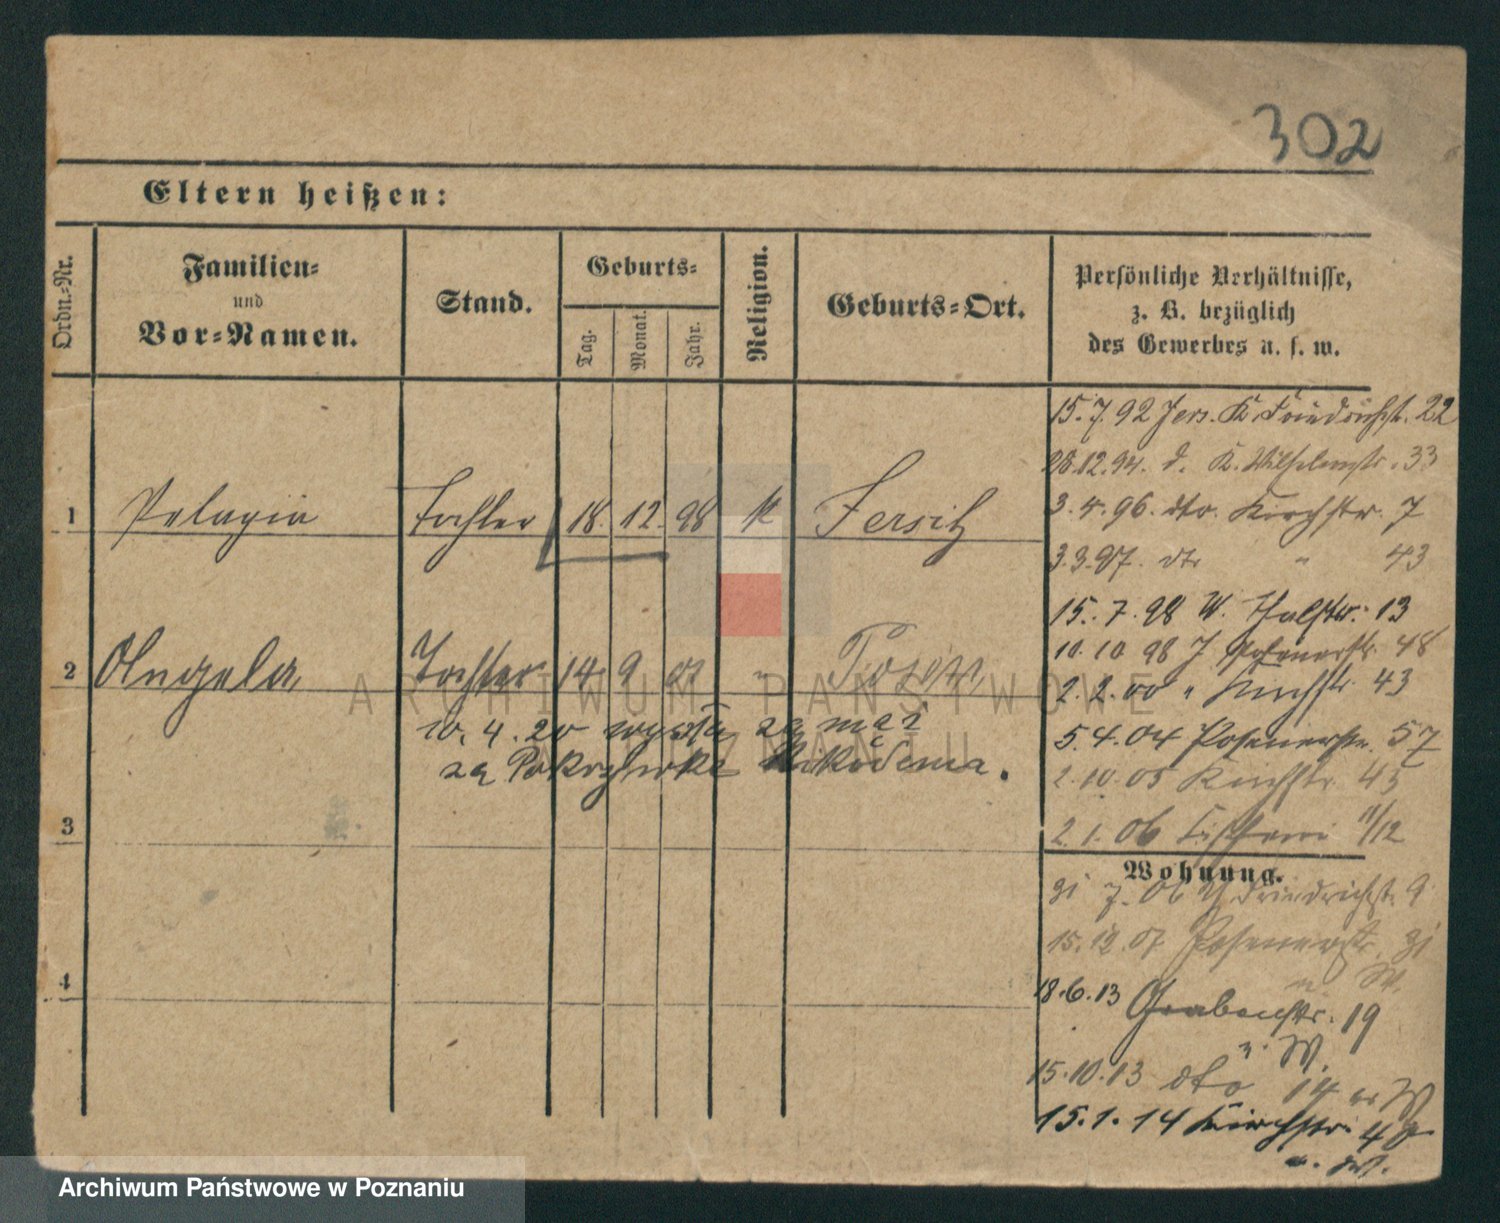 302
Eltern heißen:
Ordn.-Nr.
Familien-
und
Vor-Namen.
Stand.
Geburts-
Tag.
Monat.
Jahr.
Religion.
Geburts-Ort.
Persönliche Verhältnisse,
z. B. bezüglich
des Gewerbes u. s. w.
1 Pelagia Tochter 18. 12. 98 k Jersitz
2 Angela Tochter 14 9 01 " Posen
10. 4. 20 wyszła za mąż
za
3
4
15. 7. 92 Jers. K. Friedrichstr. 22
28.12.94. d. K. Wilhelmstr. 33
3. 4. 96. dto. Kirchstr. 7
3.3.97. dto " 43
15. 7. 98 W. Thalstr. 13
10. 10 98 J Posenerstr. 48
2. 2. 00 " Kirchstr. 43
5. 4. 04 Posenerstr. 57
2. 10. 05 Kirchstr. 43
2. 1. 06 11/12
Wohnung.
7. 06 Friedrichstr. 9
15. 12. 07 Posenerstr. 31
W.
18. 6. 13 Grabenstr. 19
W.
15. 10. 13 dto 14 W
15. 1. 14 Kirchstr. 4
ARCHIWUM PAŃSTWOWE
W POZNANIU
Archiwum Państwowe w Poznaniu